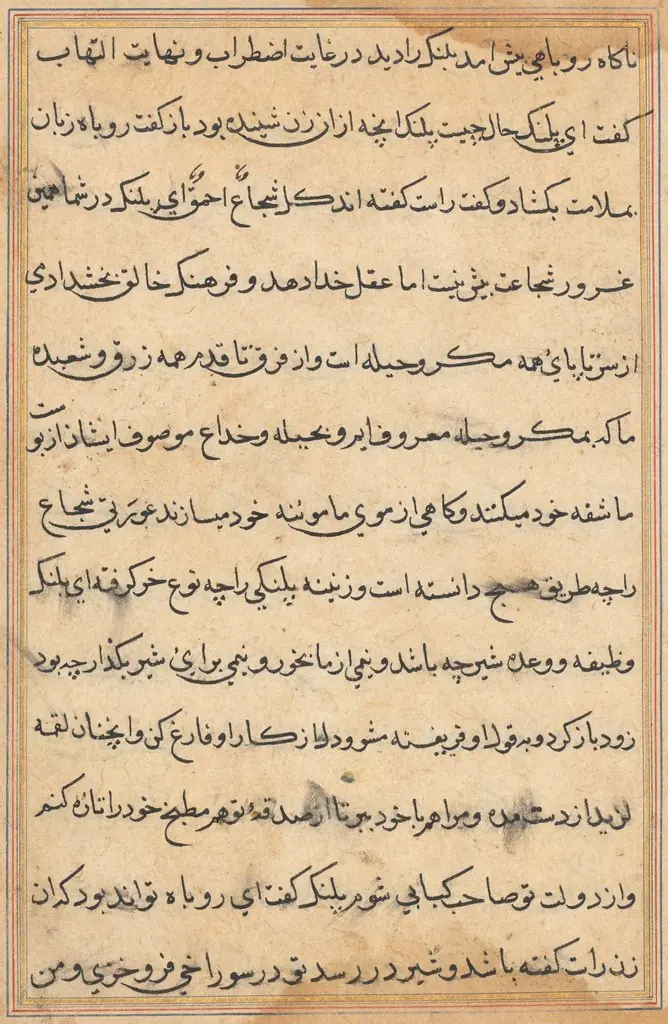 ناکاه روباهي پیش امد پلنک را دید در غایت اضطراب و نهایت التهاب
کفت اي پلنک حال چیست پلنک انچه ازان زن شنیده بود باز کفت روباه زبان
بملامت بکشاد و کفت راست کفته اند کل شجاع احمق اي پلنک در شما همین
غرور شجاعت بیش نیست اما عقل خدا دهد و فرهنک خالق بخشد ادمي
از سر تا پاي همه مکر و حیله است و از فرق تا قدم همه زرق و شعبده
ما که بمکر و حیله معروف ایم و بحیله و خداع موصوف ایشان از پوست
ما شفه خود میکنند و کاهي از موي ما موئنه خود میسازند عورتي شجاع
را چه طریق هیچ دانسته است و زنینه پلنکي را چه نوع خر کرفته اي پلنک
وظیفه و وعده شیر چه باشد و نیمي از ما بخور و نیمي براي شیر بکذار چه بود
زود باز کرد و بقول او فریفته مشو و دل از کار او فارغ کن و اینچنان لقمه
لذیذ از دست مده و مرا هم با خود ببر تا از صدقه تو هم مطبخ خود را تازه کنم
و از دولت تو صاحب کبابي شوم پلنک کفت اي روباه تواند بود که ان
زن راست کفته باشد و شیر در رسد تو در سوراخي فرو خزي و من